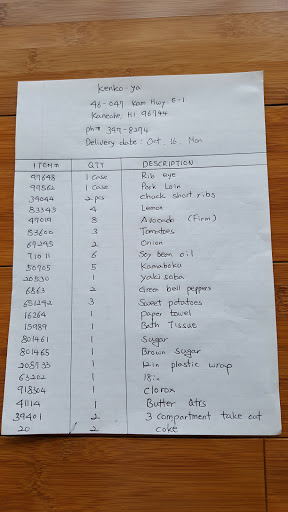 Kenko-ya
46-047 Kam Hwy E-1
Kaneohe, HI 96744
ph# 347-8274
Delivery date: Oct. 16. Mon
ITEM# QTY DESCRIPTION
97648 1 case Rib eye
97862 1 case Pork Loin
39044 2 pcs chuck short ribs
83343 4 Lemon
47019 8 Avocado (Firm)
83600 3 Tomatoes
69295 2 Onion
71011 6 Soy bean oil
50705 5 Kamaboku
20530 1 yaki soba
6863 2 Green bell peppers
651242 3 Sweet potatoes
16264 1 paper towel
15989 1 Bath Tissue
801461 1 Sugar
801465 1 Brown Sugar
208733 1 12in plastic wrap
63202 1 18in
918304 1 clorox
41114 1 Butter qtrs
39401 2 3 compartment take out
20 2 coke